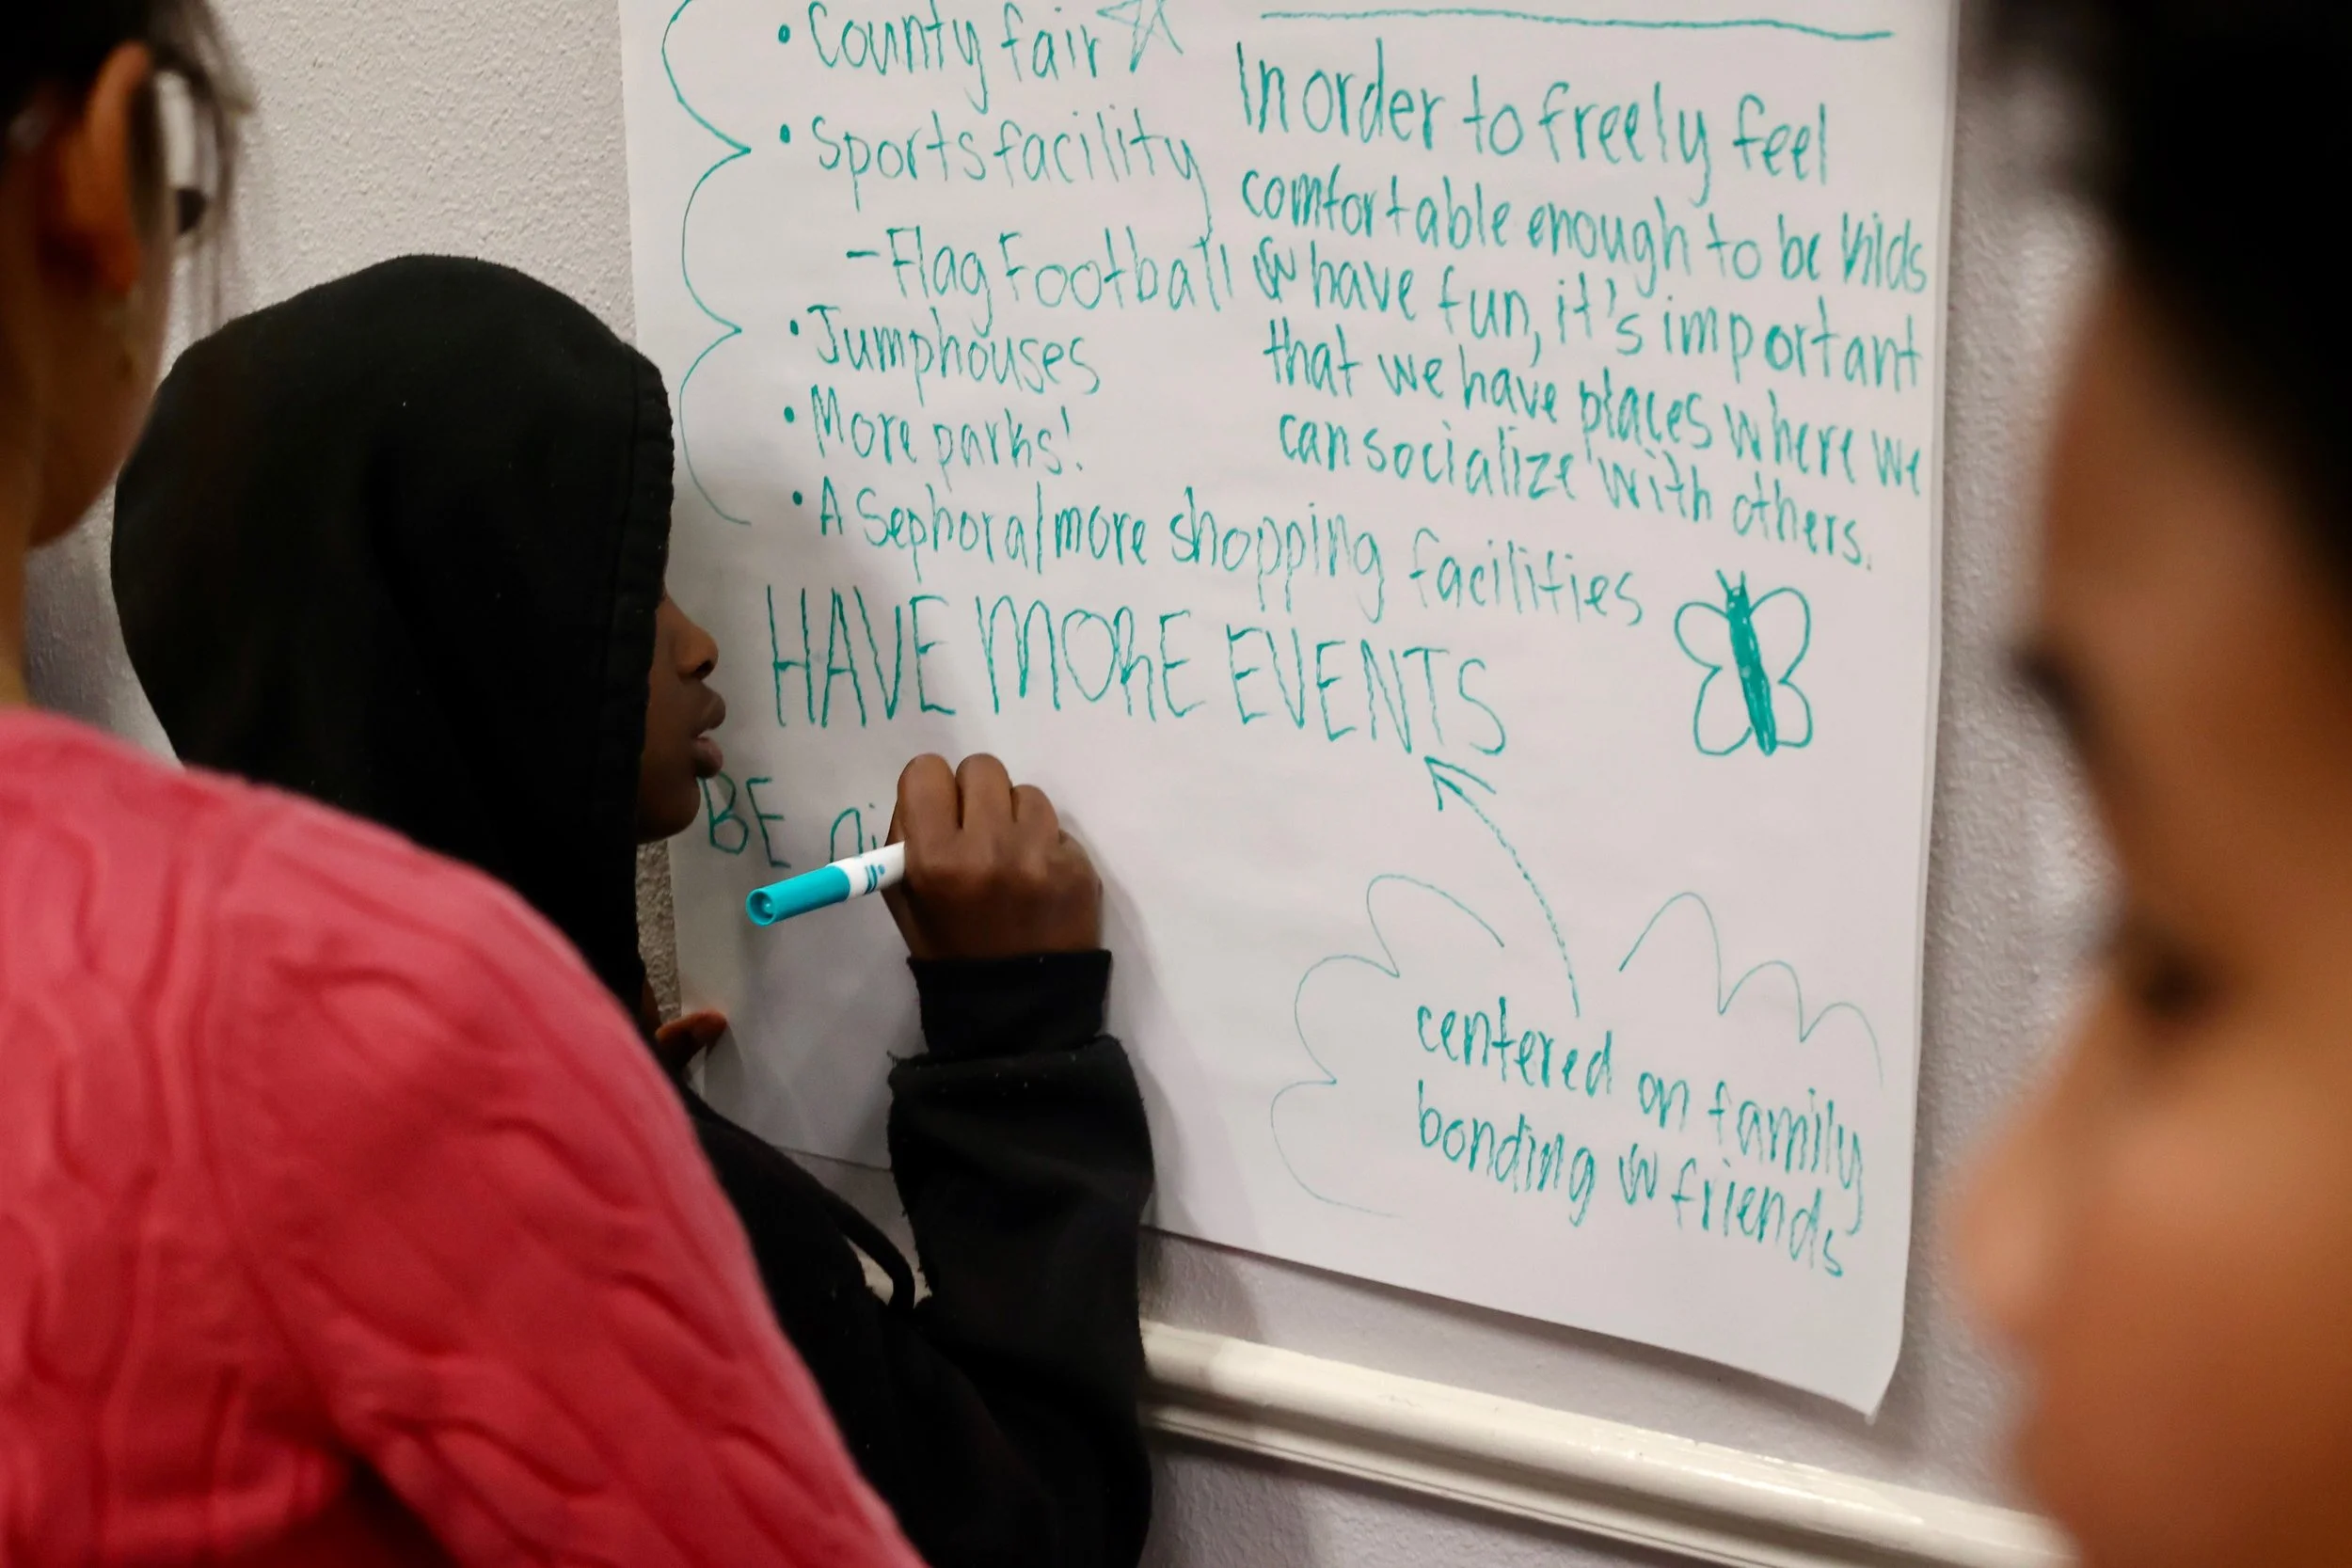 • County fair
• Sports facility
- Flag Football
• Jumphouses
• More parks!
• A Sephora/more shopping facilities
In order to freely feel
comfortable enough to be kids
& have fun, it's important
that we have places where we
can socialize with others.
HAVE MORE EVENTS
BE ni
centered on family
bonding w friends